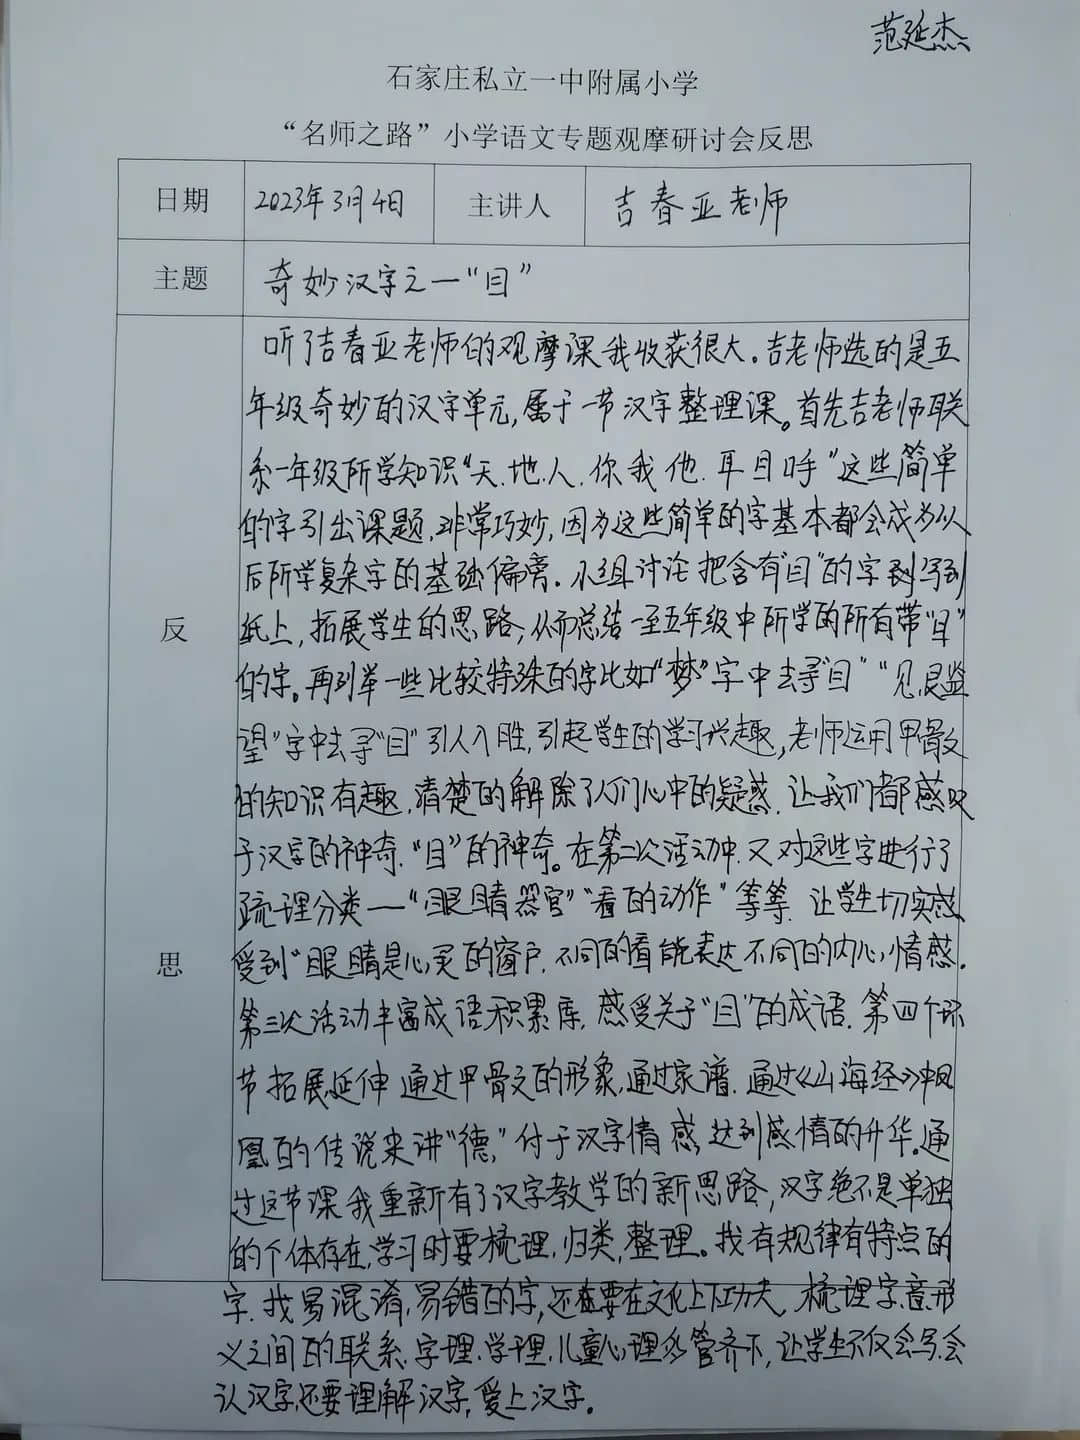 范延杰
石家庄私立一中附属小学
“名师之路”小学语文专题观摩研讨会反思
日期 2023年3月4日 主讲人 吉春亚老师
主题 奇妙汉字之一“目”
反思
听了吉春亚老师的观摩课我收获很大。吉老师选的是五
年级奇妙的汉字单元,属于一节汉字整理课。首先吉老师联
系一年级所学知识“天.地.人.你我他.耳目口手”这些简单
的字引出课题,非常巧妙,因为这些简单的字基本都会成为以
后所学复杂字的基础偏旁。小组讨论把含有“目”的字都写到
纸上,拓展学生的思路,从而总结一至五年级中所学的所有带“目”
的字。再列举一些比较特殊的字比如“梦”字中去寻“目”“见.艮.监
望”字中去寻“目”引人入胜,引起学生的学习兴趣,老师运用甲骨文
的知识有趣.清楚的解除了人们心中的疑惑.让我们都感叹
于汉字的神奇.“目”的神奇。在第二次活动中.又对这些字进行了
疏理分类——“眼睛器官”“看的动作”等等.让学生切实感
受到“眼睛是心灵的窗户.不同的看能表达不同的内心情感.
第三次活动丰富成语积累库.感受关于“目”的成语.第四个环
节拓展延伸 通过甲骨文的形象,通过家谱.通过《山海经》中凤
凰的传说来讲“德”,付于汉字情感,达到感情的升华。通
过这节课我重新有了汉字教学的新思路,汉字绝不是单独
的个体存在,学习时要梳理.归类,整理。找有规律有特点的
字.找易混淆.易错的字,还要在文化上下功夫.梳理字音.形
义之间的联系.字理.学理.儿童心理多管齐下,让学生不仅会写.会
认汉字,还要理解汉字,爱上汉字。